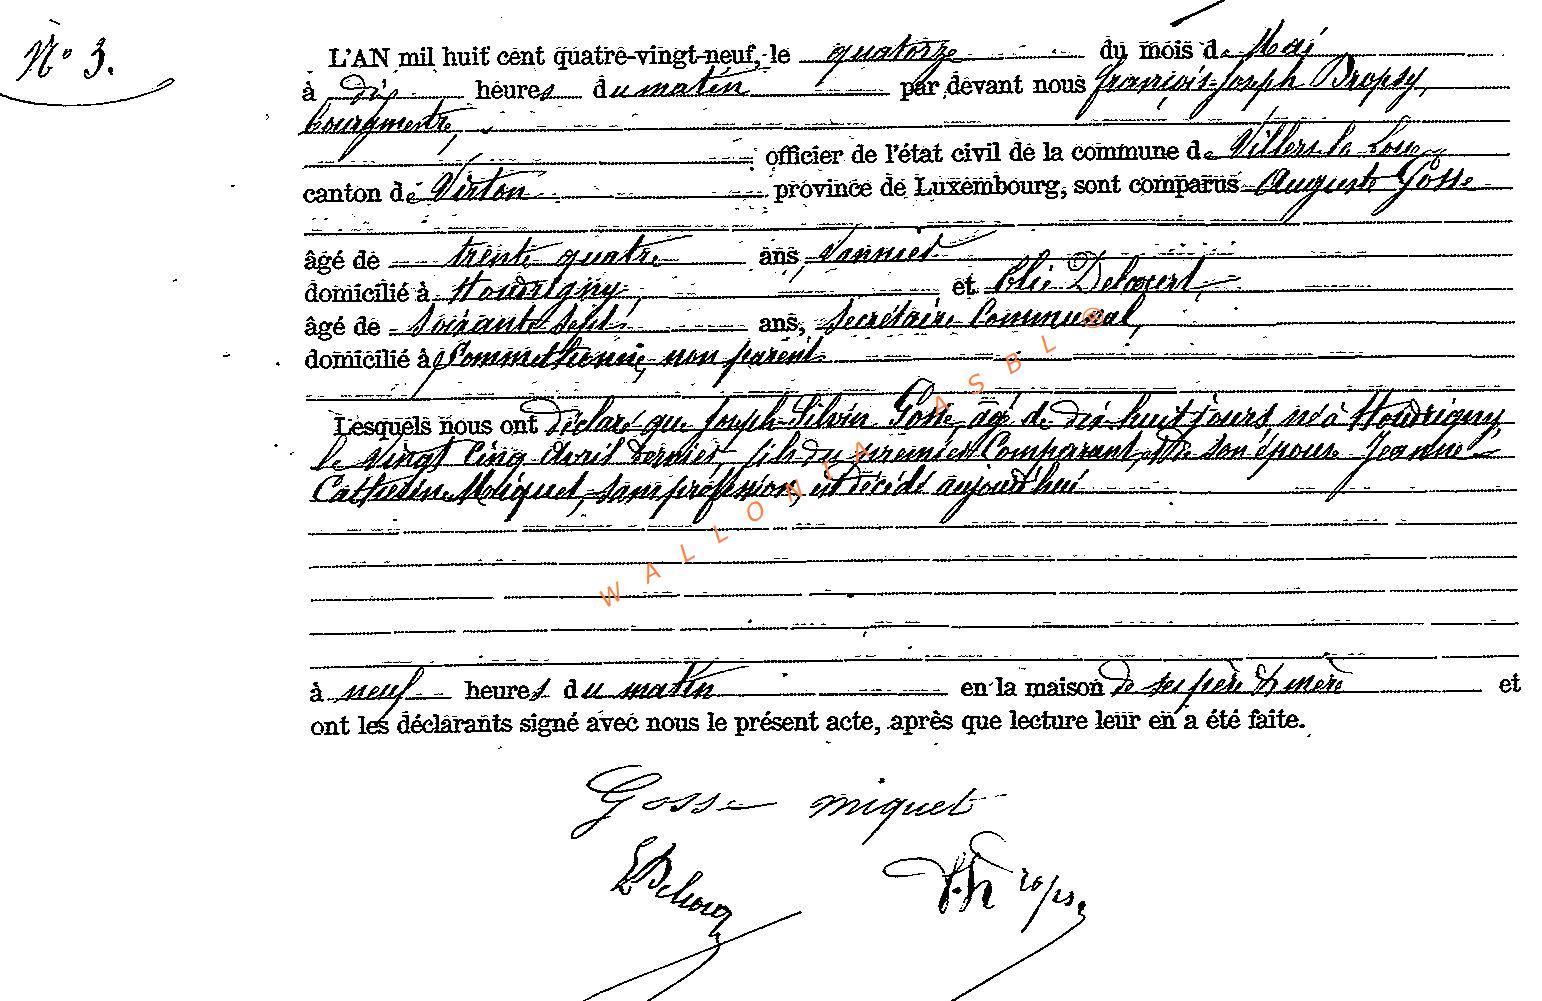 N° 3.
L'AN mil huit cent quatre-vingt-neuf, le quatorze du mois de Mai
à dix heures du matin par devant nous François-Joseph Dropsy,
bourgmestre,
officier de l'état civil de la commune de Villers-la-Loue
canton de Virton province de Luxembourg, sont comparus Auguste Gosse
âgé de trente quatre ans, vannier
domicilié à Houdrigny, et Elie
âgé de soixante sept ans, secrétaire Communal,
domicilié à Sommethonne, non parent
Lesquels nous ont déclaré que Joseph-Silvin Gosse, agé de dix huit jours, né à Houdrigny
le vingt cinq Avril dernier, fils du premier Comparant, et de son épouse Jeanne
Catherine Miquet, sans profession, est décédé aujourd'hui
à neuf heures du matin en la maison de ses père & mère et
ont les déclarants signé avec nous le présent acte, après que lecture leur en a été faite.
Gosse miquet
WALLONIA ASBL ®